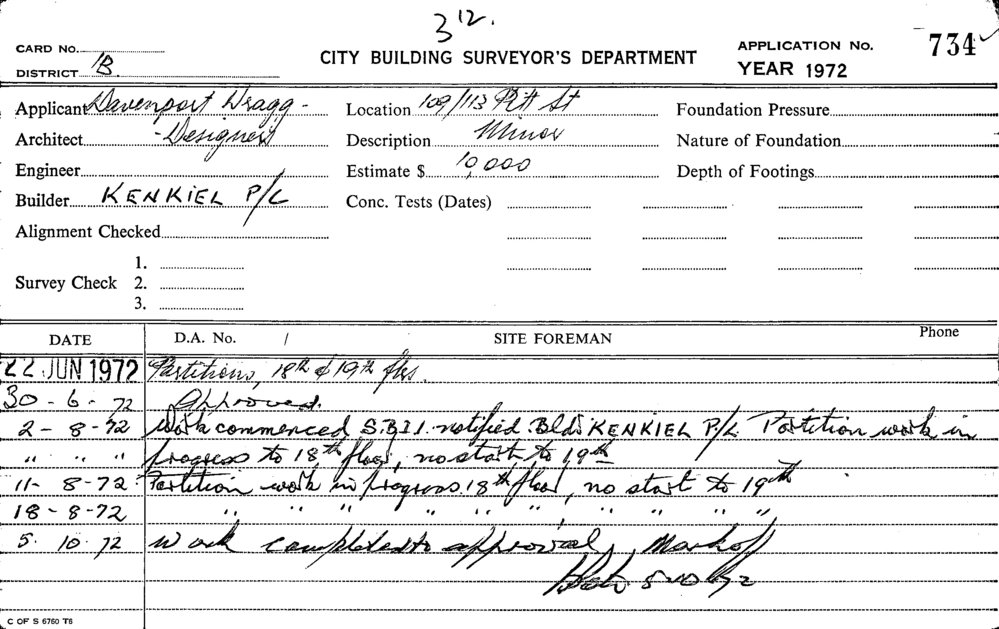 312.
CARD No.
DISTRICT 1B
CITY BUILDING SURVEYOR'S DEPARTMENT
APPLICATION No. 734
YEAR 1972
Applicant Davenport Dragg - Location 109/113 Pitt St Foundation Pressure
Architect - Designers Description Minor Nature of Foundation
Engineer Estimate $ 10,000 Depth of Footings
Builder KENKIEL P/L Conc. Tests (Dates)
Alignment Checked
1.
Survey Check 2.
3.
DATE D.A. No. / SITE FOREMAN Phone
22 JUN 1972 Partitions, 18th & 19th flrs.
30-6-72 Approved.
2-8-72 Work commenced S.B.I. notified. Bldr KENKIEL P/L. Partition work in
" " " progress to 18th floor, no start to 19th
11-8-72 Partition work in progress 18th floor, no start to 19th
18-8-72 " " " " " " " " " "
5.10.72 Work completed to approval,
5-10-72
C OF S 6760 T6